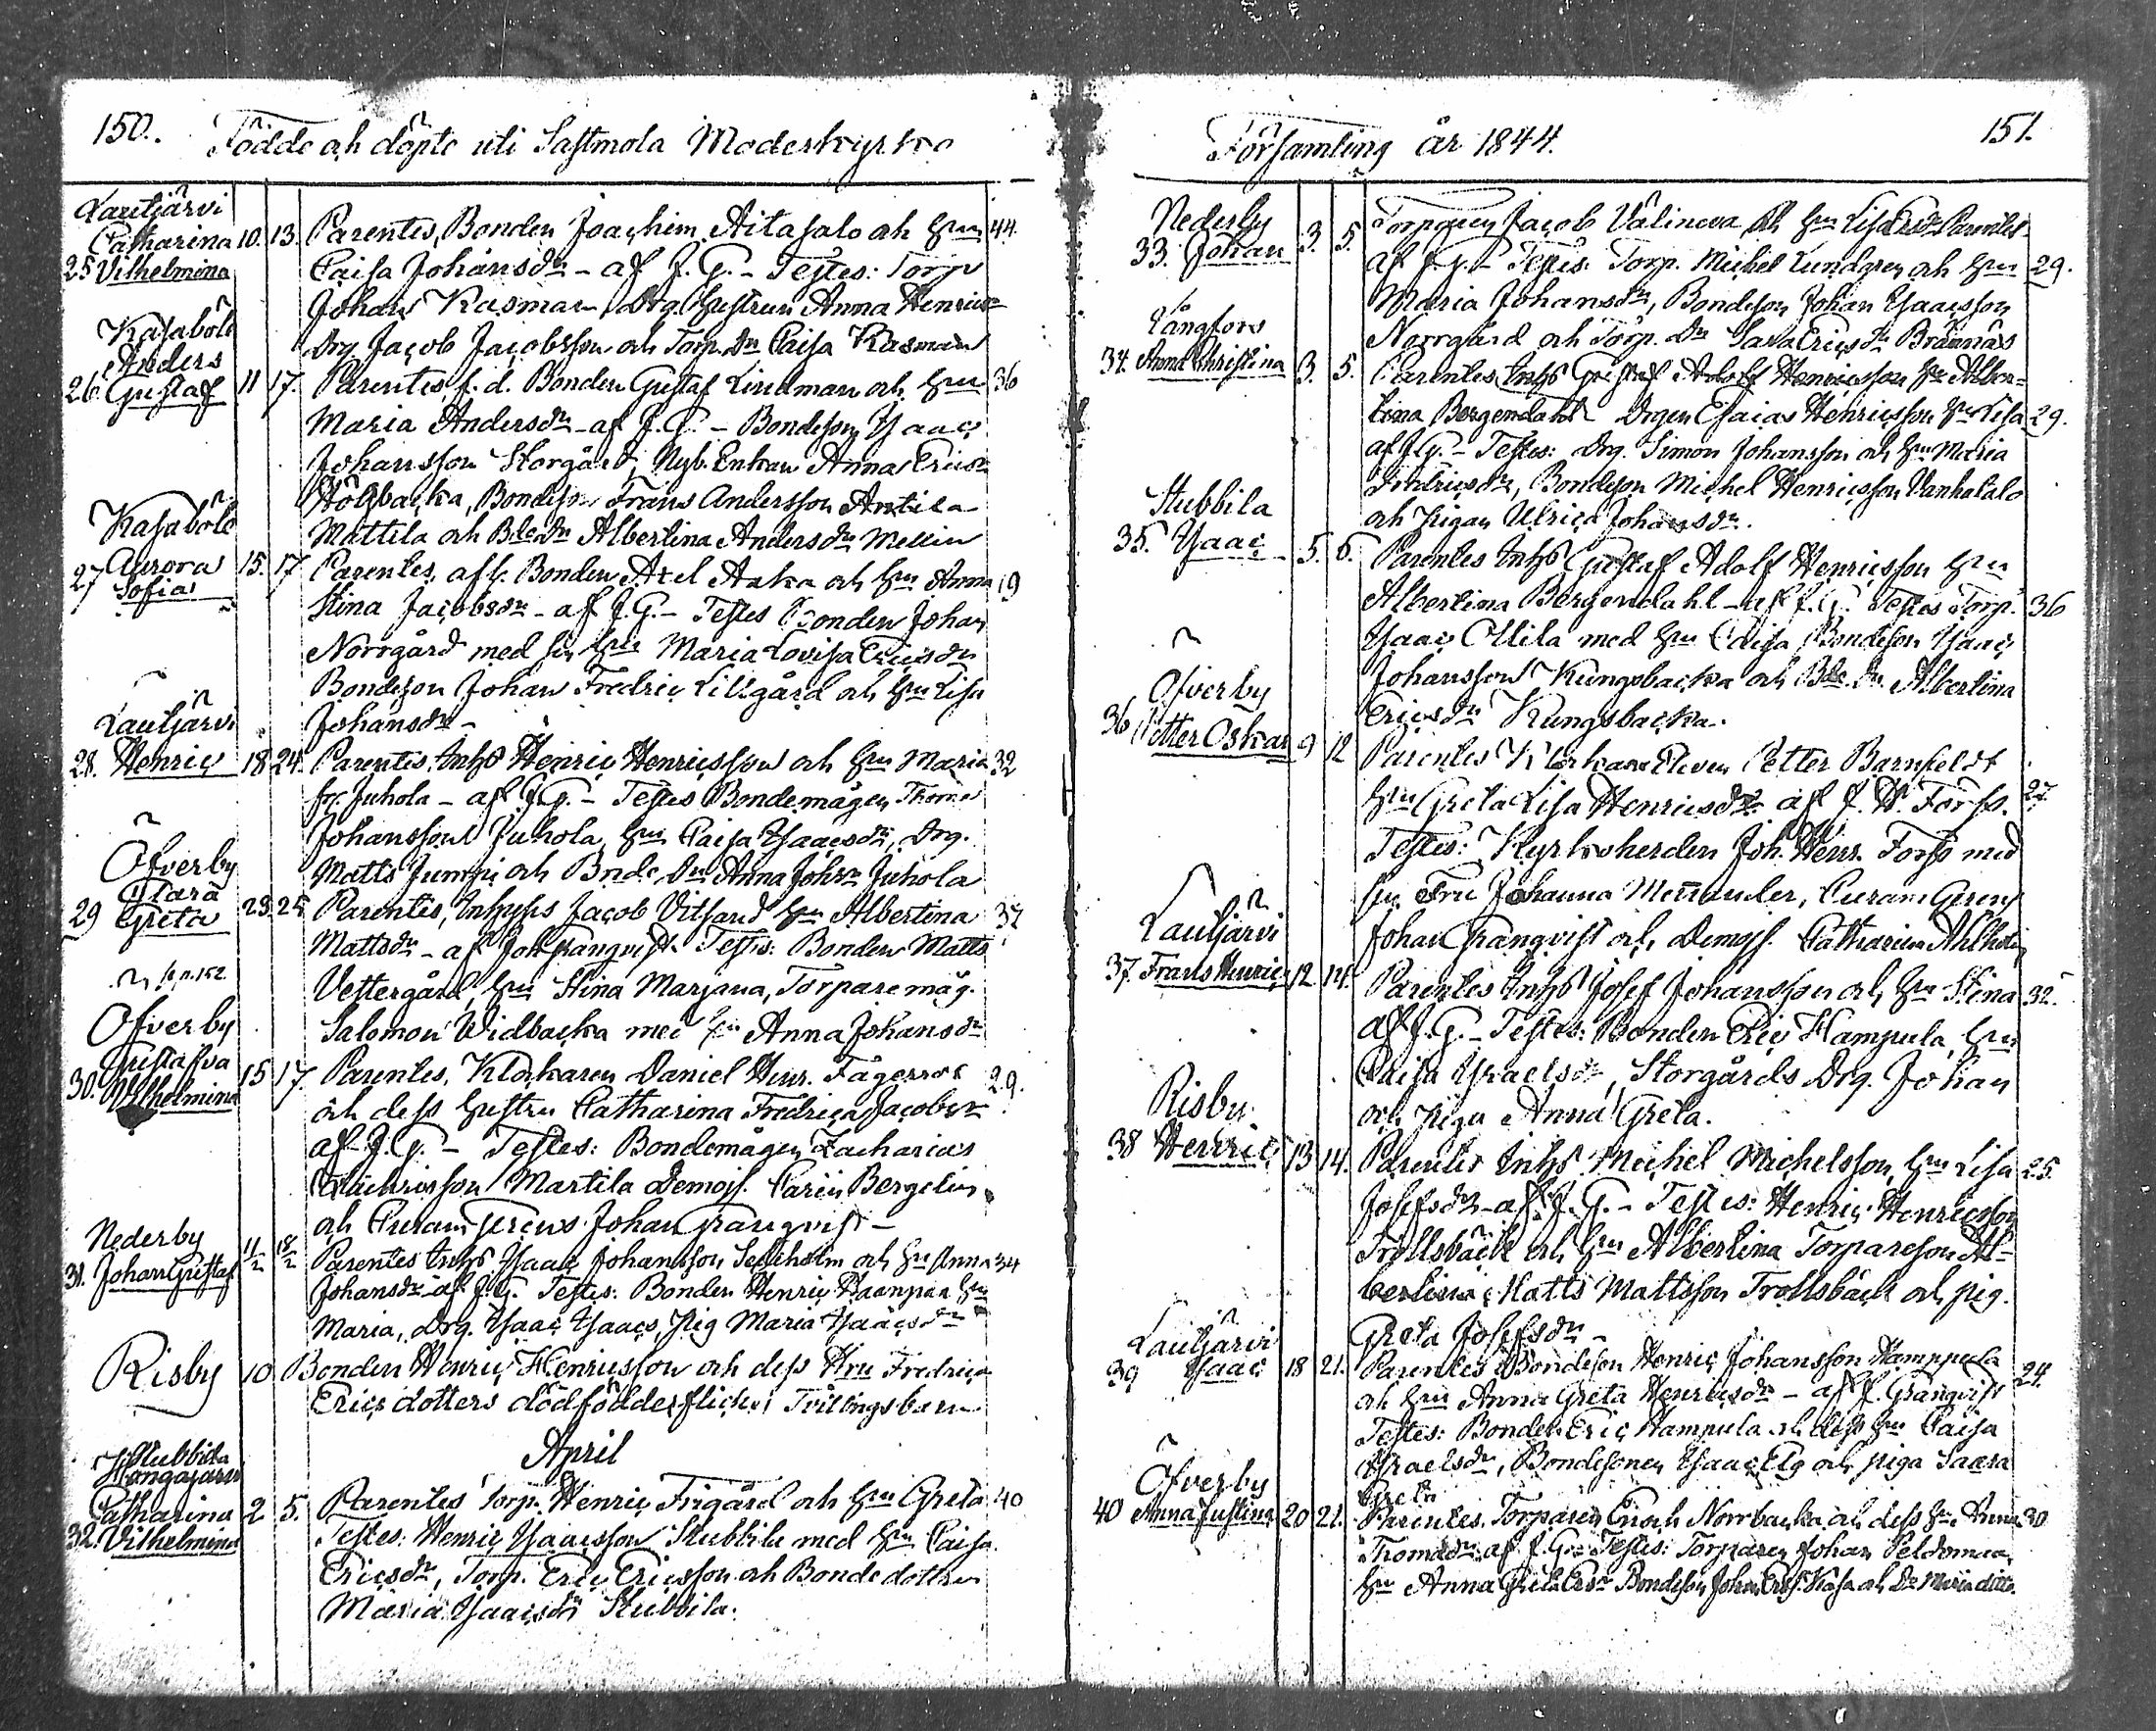 150. Födde och döpte uti Sastmola Moderkyrko
Lautjärvi
Catharina 10. 13. Parentes, Bonden Joachim Aitasalo och Hru 44
25 Vilhelmina Caisa Johansdr – af J. G. – Testes: Torp
Johan Kasman, Drg. Hustrun Anna Henricsdr
Kasaböle
Anders Drg. Jacob Jacobsson och Torp. Dr Caisa Kasman
26. Gustaf 11 17. Parentes, f. d. Bonden Gustaf Lindman och Hru 36
Maria Andersdr – af J. G. – Bondeson Isaac
Johansson Storgård, Nyb. Enkan Anna Ericsdr
Bondeson Frans Andersson Antila
Kasaböle
Mattila och Bde Dr Albertina Andersdr
Aurora 15. 17 Parentes Bonden Axel och Hru Anna 19
27 Sofia
Stina Jacobsdr – af J. G. – Testes Bonden Johan
Norrgård med sin Hru Maria Lovisa Ericsdr
Bondeson Johan Fredric Lillgård och Hru Lisa
Lautjärvi Johansdr –
28. Henric 18 24. Parentes, Inhs Henric Henricsson och Hru Maria 32
Juhola – af J. G. – Testes Bondemågen Thomas
Johansson Juhola, Hru Caisa Isaacsdr, Drg.
Öfverby Matts och Bnde Dr Anna Johsdr Juhola
Clara
29 Greta 23. 25 Parentes, Inhyses Jacob Vitsand Hru Albertina 37
Mattsdr – af Joh Granqvist. Testes: Bonden Matts
p. 152. Vestergård, Hru Stina Marjana, Torparemåg.
Öfverby Salomon Widbacka med Hru Anna Johansdr
Gustafva
30. Wilhelmina 15 17. Parentes, Klockaren Daniel Henr. Fagerros 29.
och dess Hustru Catharina Fredrica Jacobsdr
af J. G. – Testes: Bondemågen Zacharias
Martila Demois. Carin Bergelin
och Curam Gerens Johan Granqvist –
Nederby
31. Johan Gustaf 11/2 18/2 Parentes Inhs Isaac Johansson och Hru Anna 34
Johansdr af J. G. Testes: Bonden Henric Haanpää Hru
Maria, Drg. Isaac Isaacs, Pig Maria Isaacsdr
Risby 10 Bonden Henric Henricsson och dess Hru Fredrica
Erics dotters dödfödde flickor, Tvillingsbarn
April
Stubbila
Catharina 2 5. Parentes Torp. Henric Frigård och Hru Greta 40
32. Vilhelmina Testes: Henric Isaacsson Stubbila med Hru Caisa
Ericsdr, Torp. Eric Ericsson och Bonde dottren
Maria Isaacsdr Stubbila.
Församling år 1844. 151.
Nederby
33. Johan 3. 5. Torparen Jacob Välineva och Hru Lisa Parentes
af J. G. – Testes: Torp. Michel Lundgren och Hru 29.
Maria Johansdr, Bondeson Johan Isaacsson
Långfors Norrgård och Torp. Dr Sara Ericsdr Brännäs
34. Anna Christina 3. 5. Parentes Hru
Drgen Esaias Henricsson Hru Lisa 29.
af J. G. – Testes: Drg. Simon Johansson och Hru Maria
Stubbila Bondeson Michel Henricsson Vanhatalo
och Pigan Ulrica Johansdr.
35. Isaac 5. 6. Parentes Inhs Gustaf Adolf Henricsson Hru
Albertina Bergendahl – af J. G. Testes Torp. 36
Isaac Ollila med Hru Caisa, Bondeson Isaac
Öfverby Johansson Kungsbacka och Bde Dr Albertina
Ericsdr Kungsbacka.
36 Petter Oskar 9 12 Parentes Klockare Eleven Petter Barnfeldt
Hru Greta Lisa Henricsdr af J. H. Forss. 27
Testes: Kyrkoherden Joh. Henr. Forss med
sin Fru Johanna Curam Gerens
Lautjärvi Johan Granqvist och Demois. Catharina Ahlholm
37. Frans Henric 12. 14. Parentes Inhs Josef Johansson och Hru Stina 32.
af J. G. – Testes: Bonden Eric Hampula, Hru
Caisa Israelsdr, Storgårds Drg. Johan
Risby och Piga Anna Greta.
38 Henric 13 14. Parentes Inhs Michel Michelsson, Hru Lisa 25.
Josefsdr – af J. G. – Testes: Henric Henricsson
Trollsbäck och Hru Albertina Torpareson
Matts Mattsson Trollsbäck och pig.
Lautjärvi Greta Josefsdr –
39 Isaac 18 21. Parentes Bondeson Henric Johansson Hamppula
och Hru Anna Greta Henricsdr – af J. Granqvist 24.
Testes: Bonden Eric Hampula och dess Hru Caisa
Öfverby Israelsdr, Bondesonen Isaac Elg och piga Saara
Greta
40 Anna Justina 20 21. Parentes, Torparen Enoch Norrbacka och dess Hru Anna 30
Thomasdr af J. G. – Testes: Torparen Johan Peldomaa,
Hru Anna Greta Ersdr Bondeson Johan Kasa och Dr Maria ditto.